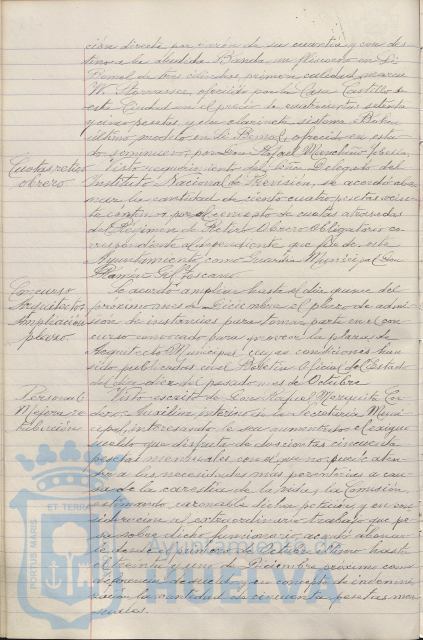 ción directa por razón de su cuantía y con des-
tino a la aludida Banda un fliscorno en Si
Bemol de tres cilindros primera calidad, marca
W. ofrecido por la Casa Castillo de
esta Ciudad en el precio de cuatrocientas setenta
y cinco pesetas, y un clarinete, sistema
último modelo en Si Bemol, ofrecido en esta-
do seminuevo, por Don Rafael
Cuotas retiro
obrero
Visto requerimiento del Señor Delegado del
Instituto Nacional de Previsión, se acordó abo-
nar la cantidad de ciento cuatro pesetas ochen-
ta céntimos por el concepto de cuotas atrasadas
del Régimen de Retiro Obrero Obligatorio co-
rrespondiente al dependiente que fué de este
Ayuntamiento, como Guardia Municipal, Don
Toscano.
Concurso
Arquitecto
Ampliación
plazo
Se acordó ampliar hasta el día quince del
próximo mes de Diciembre el plazo de admi-
sión de instancias para tomar parte en el con-
curso convocado para proveer la plaza de
Arquitecto Municipal cuyas condiciones han
sido publicadas en el Boletín Oficial del Estado
del día diez del pasado mes de Octubre.
Personal
Mejora re-
tribución
Visto escrito de Don Rafael Mezquita Cor-
dero, Auxiliar interino de la Secretaría Muni-
cipal, interesando le sea aumentado el exiguo
sueldo que disfruta de doscientas cincuenta
pesetas mensuales con el que no puede aten-
der a las necesidades más perentorias a cau-
sa de la carestía de la vida, y la Comisión,
estimando razonable dicha petición y en con-
sideración al extraordinario trabajo que pe-
sa sobre dicho funcionario, acordó abonar-
le desde el primero de Octubre último hasta
el treinta y uno de Diciembre próximo como
diferencia de sueldo y en concepto de indemni-
zación la cantidad de cincuenta pesetas men-
suales.
ET TERRA
PORTUS MARIS
Ayuntamiento de
HUELVA